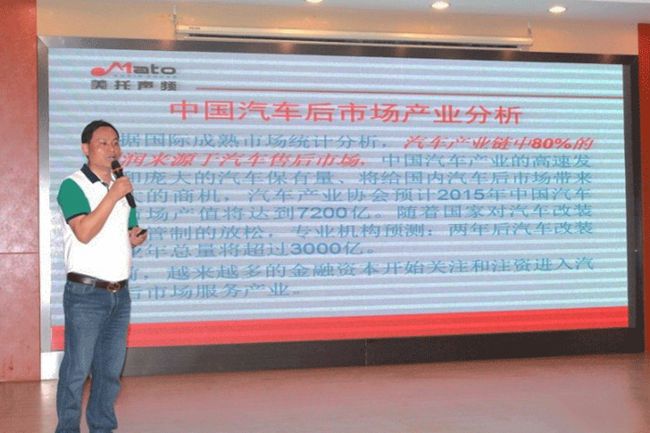 Mato
美托声频
中国汽车后市场产业分析
据国际成熟市场统计分析，汽车产业链中80%的
润来源于汽车售后市场，中国汽车产业的高速发
和庞大的汽车保有量、将给国内汽车后市场带来
大的商机，汽车产业协会预计2015年中国汽车
市场产值将达到7200亿。随着国家对汽车改装
管制的放松，专业机构预测：两年后汽车改装
年总量将超过3000亿。
，越来越多的金融资本开始关注和注资进入汽
后市场服务产业。